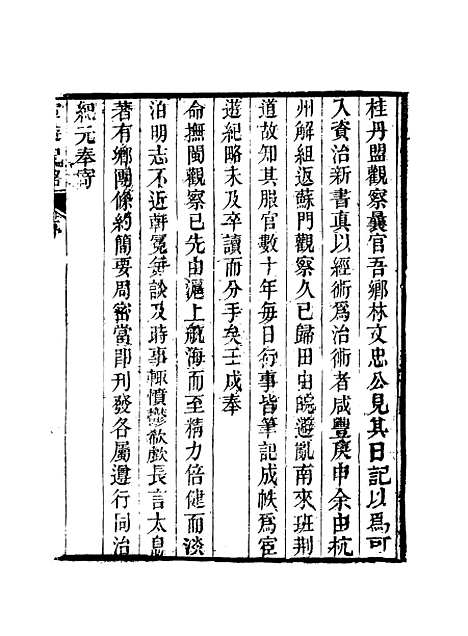 桂丹盟觀察曩官吾鄉林文忠公見其日記以爲可
入資治新書眞以經術爲治術者咸豐庚申余由杭
州解組返蘇門觀察久已歸田由皖避亂南來班荆
道故知其服官數十年每日行事皆筆記成帙爲宦
遊紀略未及卒讀而分手矣壬戍奉
命撫閩觀察已先由滬上航海而至精力倍健而淡
泊明志不近軒冕每談及時事輒憤鬱欷歔長言太息
著有鄉團條約簡要周密當卽刊發各屬遵行同治
紀元奉寄
宦遊紀略